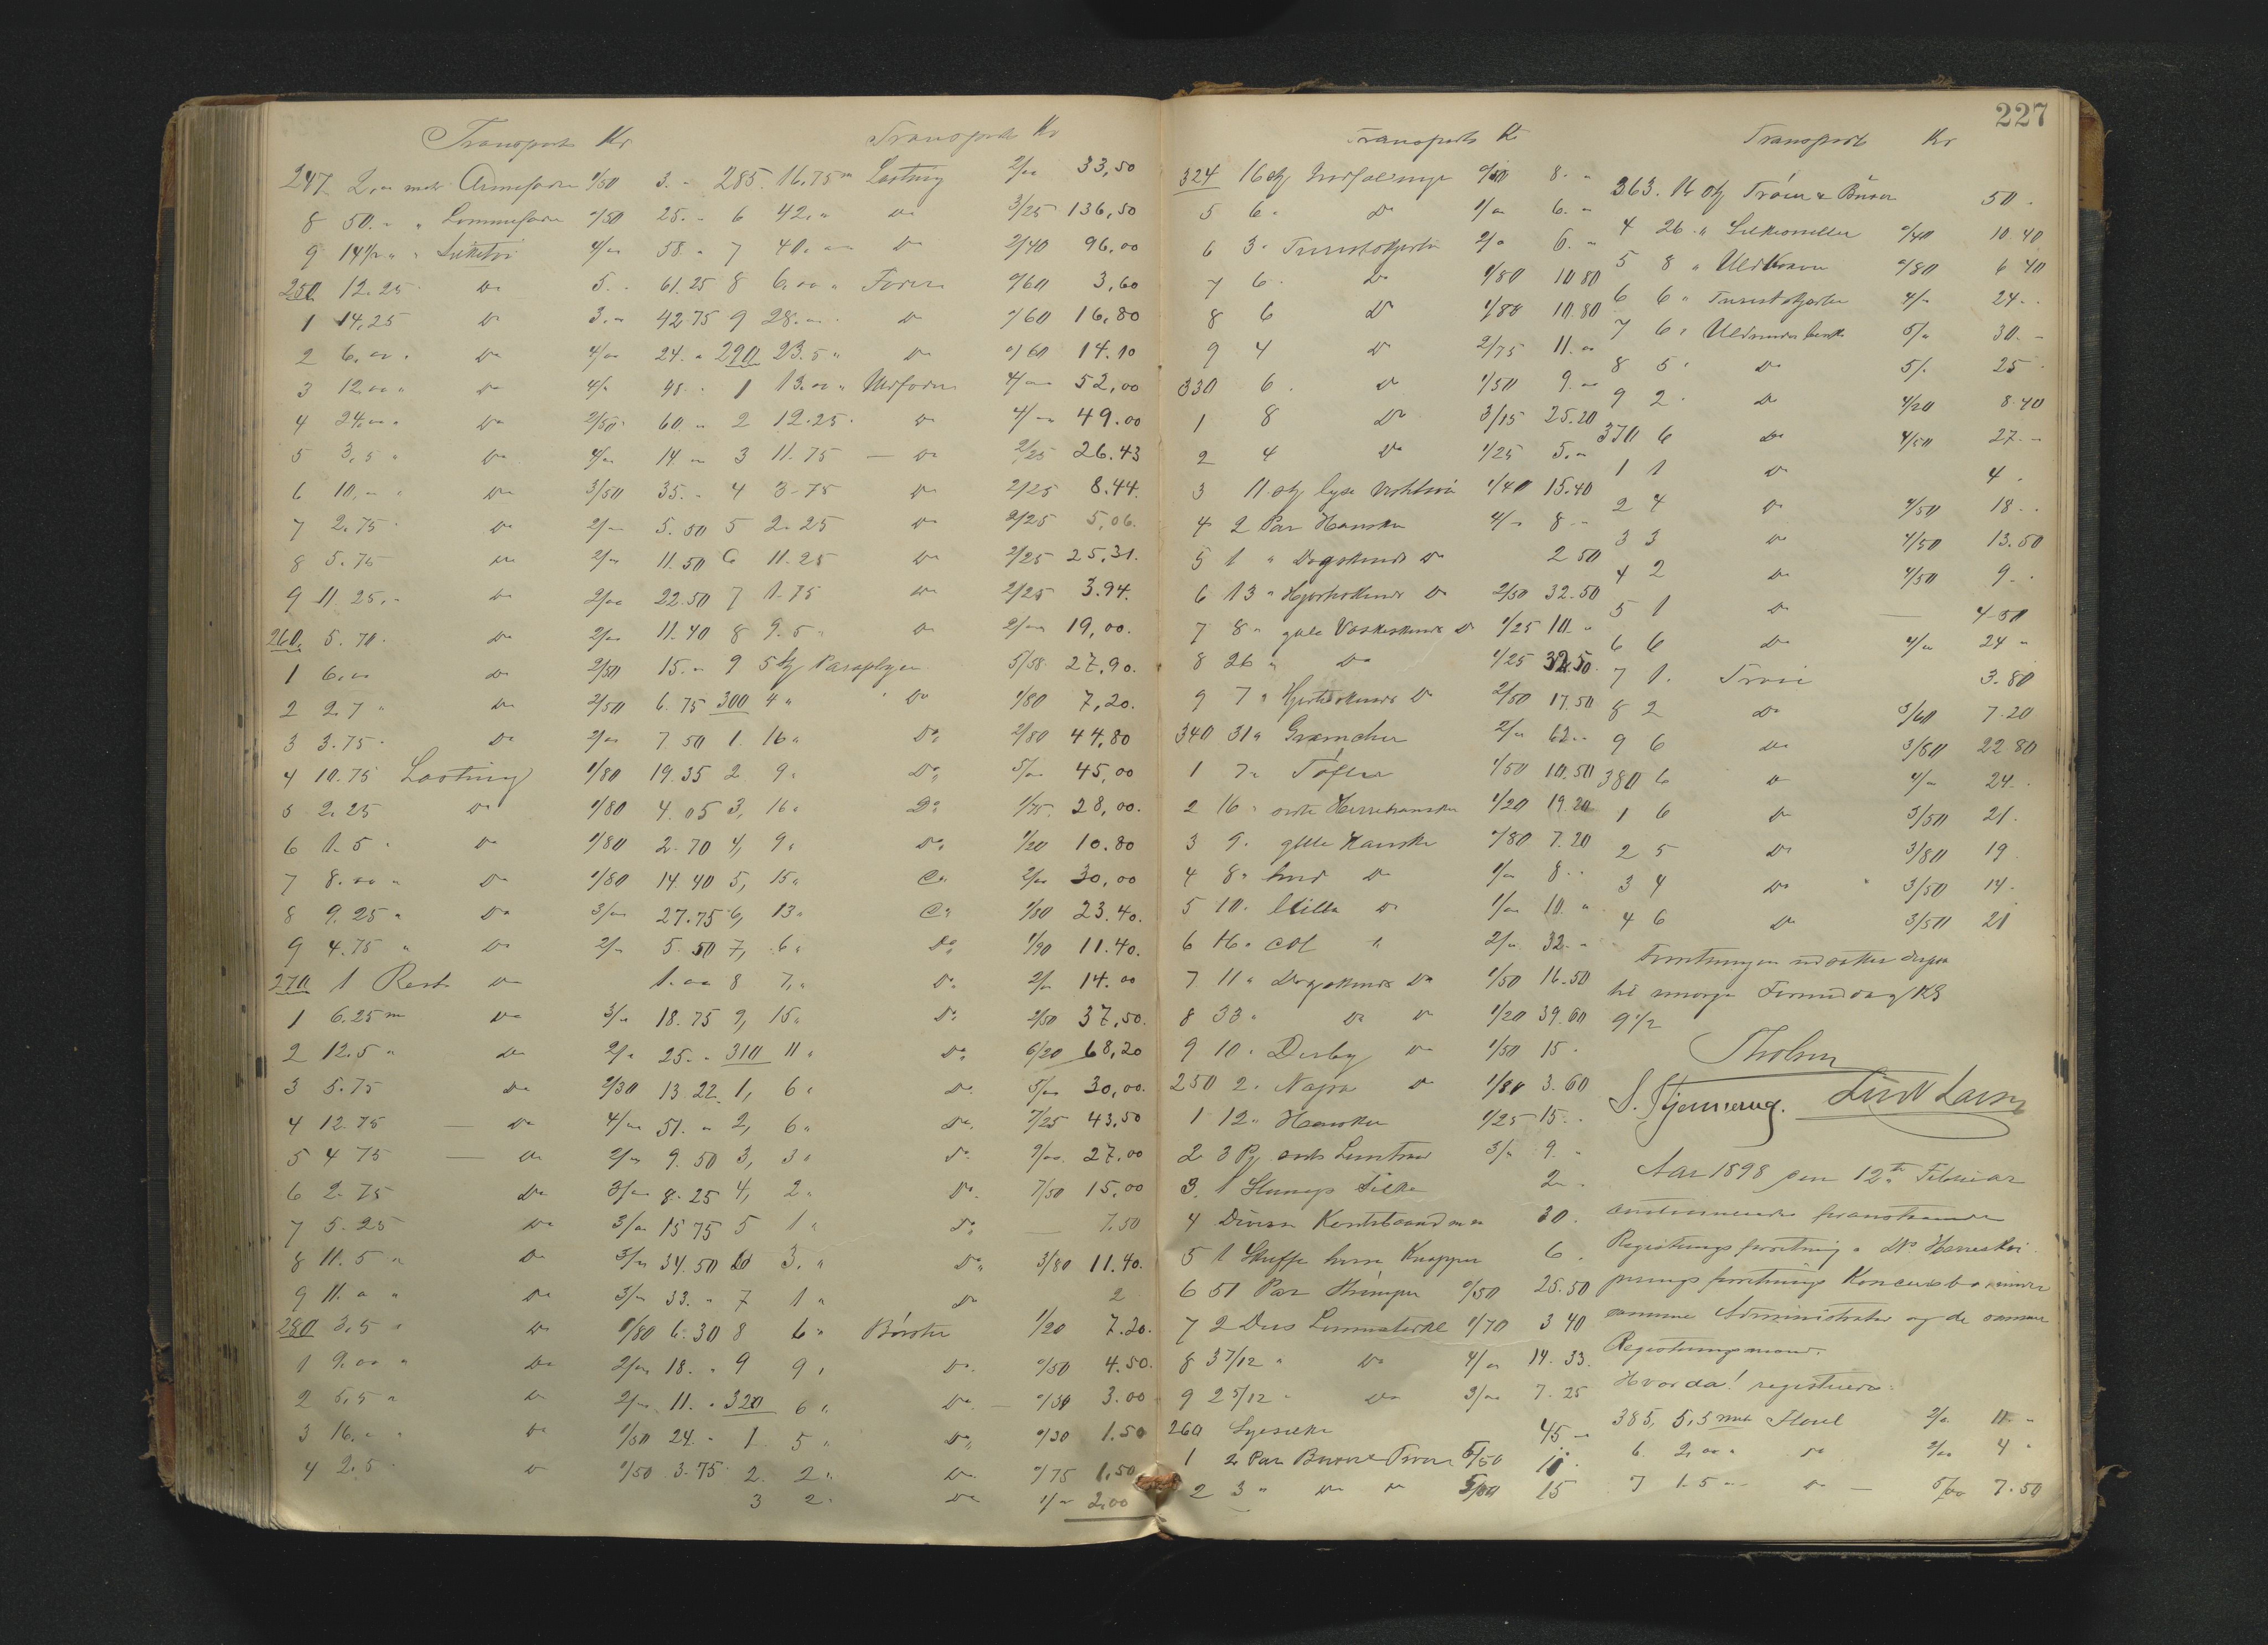 227
Transport Kr
247 2,00 metr Ærmefoder 1/50 3.-
8 50.- " Lommefoder 0/50 25.-
9 14½ " " Silketøi 4/00 58.-
250 12.25 Do 5.- 61.25
1 14,25 Do 3.- 42.75
2 6,00 Do 4/00 24.-
3 12.00 " Do 4/- 48.-
4 24.00 Do 2/50 60.-
5 3,5 " Do 4/- 14.-
6 10,- " Do 3/50 35.-
7 2.75 Do 2/- 5.50
8 5.75 Do 2/- 11.50
9 11.25,- Do 2/00 22.50
260 5.70 Do 2/00 11.40
1 6,00 Do 2/50 15.-
2 2.7 " Do 2/50 6.75
3 3.75 Do 2/00 7.50
4 10.75 Lasting 1/80 19.35
5 2.25 Do 1/80 4.05
6 1.5 Do 1/80 2.70
7 8.00 " Do 1/80 14.40
8 9.25 " Do 3/00 27.75
9 4.75 " Do 2/- 5.50
270 1 Rest Do 1.00
1 6.25 m Do 3/- 18.75
2 12.5 " Do 2/- 25.-
3 5.75 Do 2/30 13.22
4 12.75 — Do 4/00 51.-
5 4.75 — Do 2/00 9.50
6 2.75 Do 3/00 8.25
7 5.25 Do 3/00 15.75
8 11.5 " Do 3/00 34.50
9 11.- " Do 3/- 33.-
280 3,5 " Do 1/80 6.30
1 9.00 " Do 2/00 18.-
2 5,5 " Do 2/00 11.-
3 16.- " Do 1/50 24.-
4 2.5 Do 1/50 3.75
Transport Kr
285. 16.75 m Lasting 2/00 33,50
6 42." Do 3/25 136,50
7 40.00 Do 2/40 96,00
8 6,00 " Foder 0/60 3,60
9 28.- Do 0/60 16,80
290 23.5 " Do 0/60 14.10
1 13.00 " Uldfoder 4/00 52,00
2 12.25 Do 4/00 49.00
3 11.75 — Do 2/25 26.43
4 3.75 Do 2/25 8.44.
5 2.25 Do 2/25 5,06.
6 11.25 Do 2/25 25,31.
7 1.75 Do 2/25 3.94.
8 9.5 " Do 2/00 19,00.
9 5 Stk Paraplyer 5/58 27,90.
300 4 " Do 1/80 7,20.
1. 16 " Do 2/80 44,80
2 9 " Do 5/00 45,00
3, 16 " Do 1/75 28,00.
4, 9 " Do 1/20 10.80
5, 15 " Do 2/00 30,00
6, 13 " Do 1/80 23.40.
7, 6 " Do 1/90 11.40.
8 7, " Do 2/00 14.00
9, 15 " Do 2/50 37,50.
310 11 " Do 6/20 68,20
1, 6 " Do 5/00 30,00.
2, 6 " Do 7/25 43,50
3, 3 " Do 9/00 27,00
4, 2 " Do 7/50 15,00
5 1 " Do — 7.50
6 3. " Do 3/80 11.40.
7 1 " Do 2
8 6 " Børster 1/20 7.20.
9 9 " Do 0/50 4.50.
320 6 " Do — 0/50 3.00
1 5 " Do 0/30 1.50
2. 2 " Do 0/75 1,50
3 2 " Do 1/00 2,00
Transport Kr
324 16 stk 0/50 8.-
5 6 " Do 1/00 6.-
6 3 " Turistskjorter 2/00 6.-
7 6 Do 1/80 10.80
8 6 Do 1/80 10.80
9 4 Do 2/75 11.00
330 6 Do 1/50 9.00
1 8 Do 3/15 25.20
2 4 Do 1/25 5.00
3 11 stk lyse 1/40 15.40
4 2 Par Hansker 4/- 8.-
5 1 " Dogskinds Do 2.50
6 13 " Hjorteskinds Do 2/50 32.50
7 8 " gule Vaskeskinds Do 1/25 10.-
8 26 " Do 1/25 32.50
9 7 " Hjorteskinds Do 2/50 17.50
340 31 " Gramacher 2/00 62.-
1 7 " Tøfler 1/50 10.50
2 16 " sorte Herrehansker 1/20 19.20
3 9 " gule Hansker 0/80 7.20
4 8 " hvid Do 1/00 8.-
5 10 " lilla Do 1/00 10.-
6 16 " col " 2/00 32.-
7 11 " Dogskinds Do 1/50 16.50
8 33 " Do Do 1/20 39.60
9 10 " Derby Do 1/50 15.-
250 2 " Napa Do 1/80 3.60
1 12 " Hansker 1/25 15.-
2 3 Pk sorte 3/- 9.-
3. 1 Silke 2.-
4 Diverse Kantebaand 30.
5 1 Skuffe Knapper 6.
6 51 Par Strømper 0/50 25.50
7 2 Dus 1/70 3.40
8 3 7/12 " Do 4/00 14.33.
9 2 5/12 " Do 3/00 7.25
260 Sysilke 45.-
1 2 Par Buxer & Trøier 5/50 11.
2 3 " Do Do 5/00 15
Transport Kr
363. 16 stk Trøier & Buxer 50.
4 26 " 0/40 10.40
5 8 " 0/80 6.40
6 6 " Turistskjorter 4/- 24.-
7 6 " 5/- 30.-
8 5 " Do 5/- 25
9 2 " Do 4/20 8.40
370 6 Do 4/50 27.-
1 1 Do 4.
2 4 Do 4/50 18.-
3 3 Do 4/50 13.50
4 2 Do 4/50 9.-
5 1 Do — 4.50
6 6 Do 4/00 24.-
7 1. Trøie 3.80
8 2 Do 3/60 7.20
9 6 Do 3/80 22.80
380 6 Do 4/- 24.-
1 6 Do 3/50 21.
2 5 Do 3/80 19
3 4 Do 3/50 14.
4 6 Do 3/50 21
Forretningen udsattes derpaa
til imorgen Formiddag Kl
9½
Tholsen
S. Stjernerug. Lindt Larsen
Aar 1898 den 12te Februar
Registrerings forretning
Koncursbo
samme Administrator og de samme
Registreringsmænd.
Hvorda! registreredes:
385, 5,5 metr Floiel 2/00 11.-
6. 2,00 " Do 2/00 4.-
7 1.5 — Do — 5/00 7.50